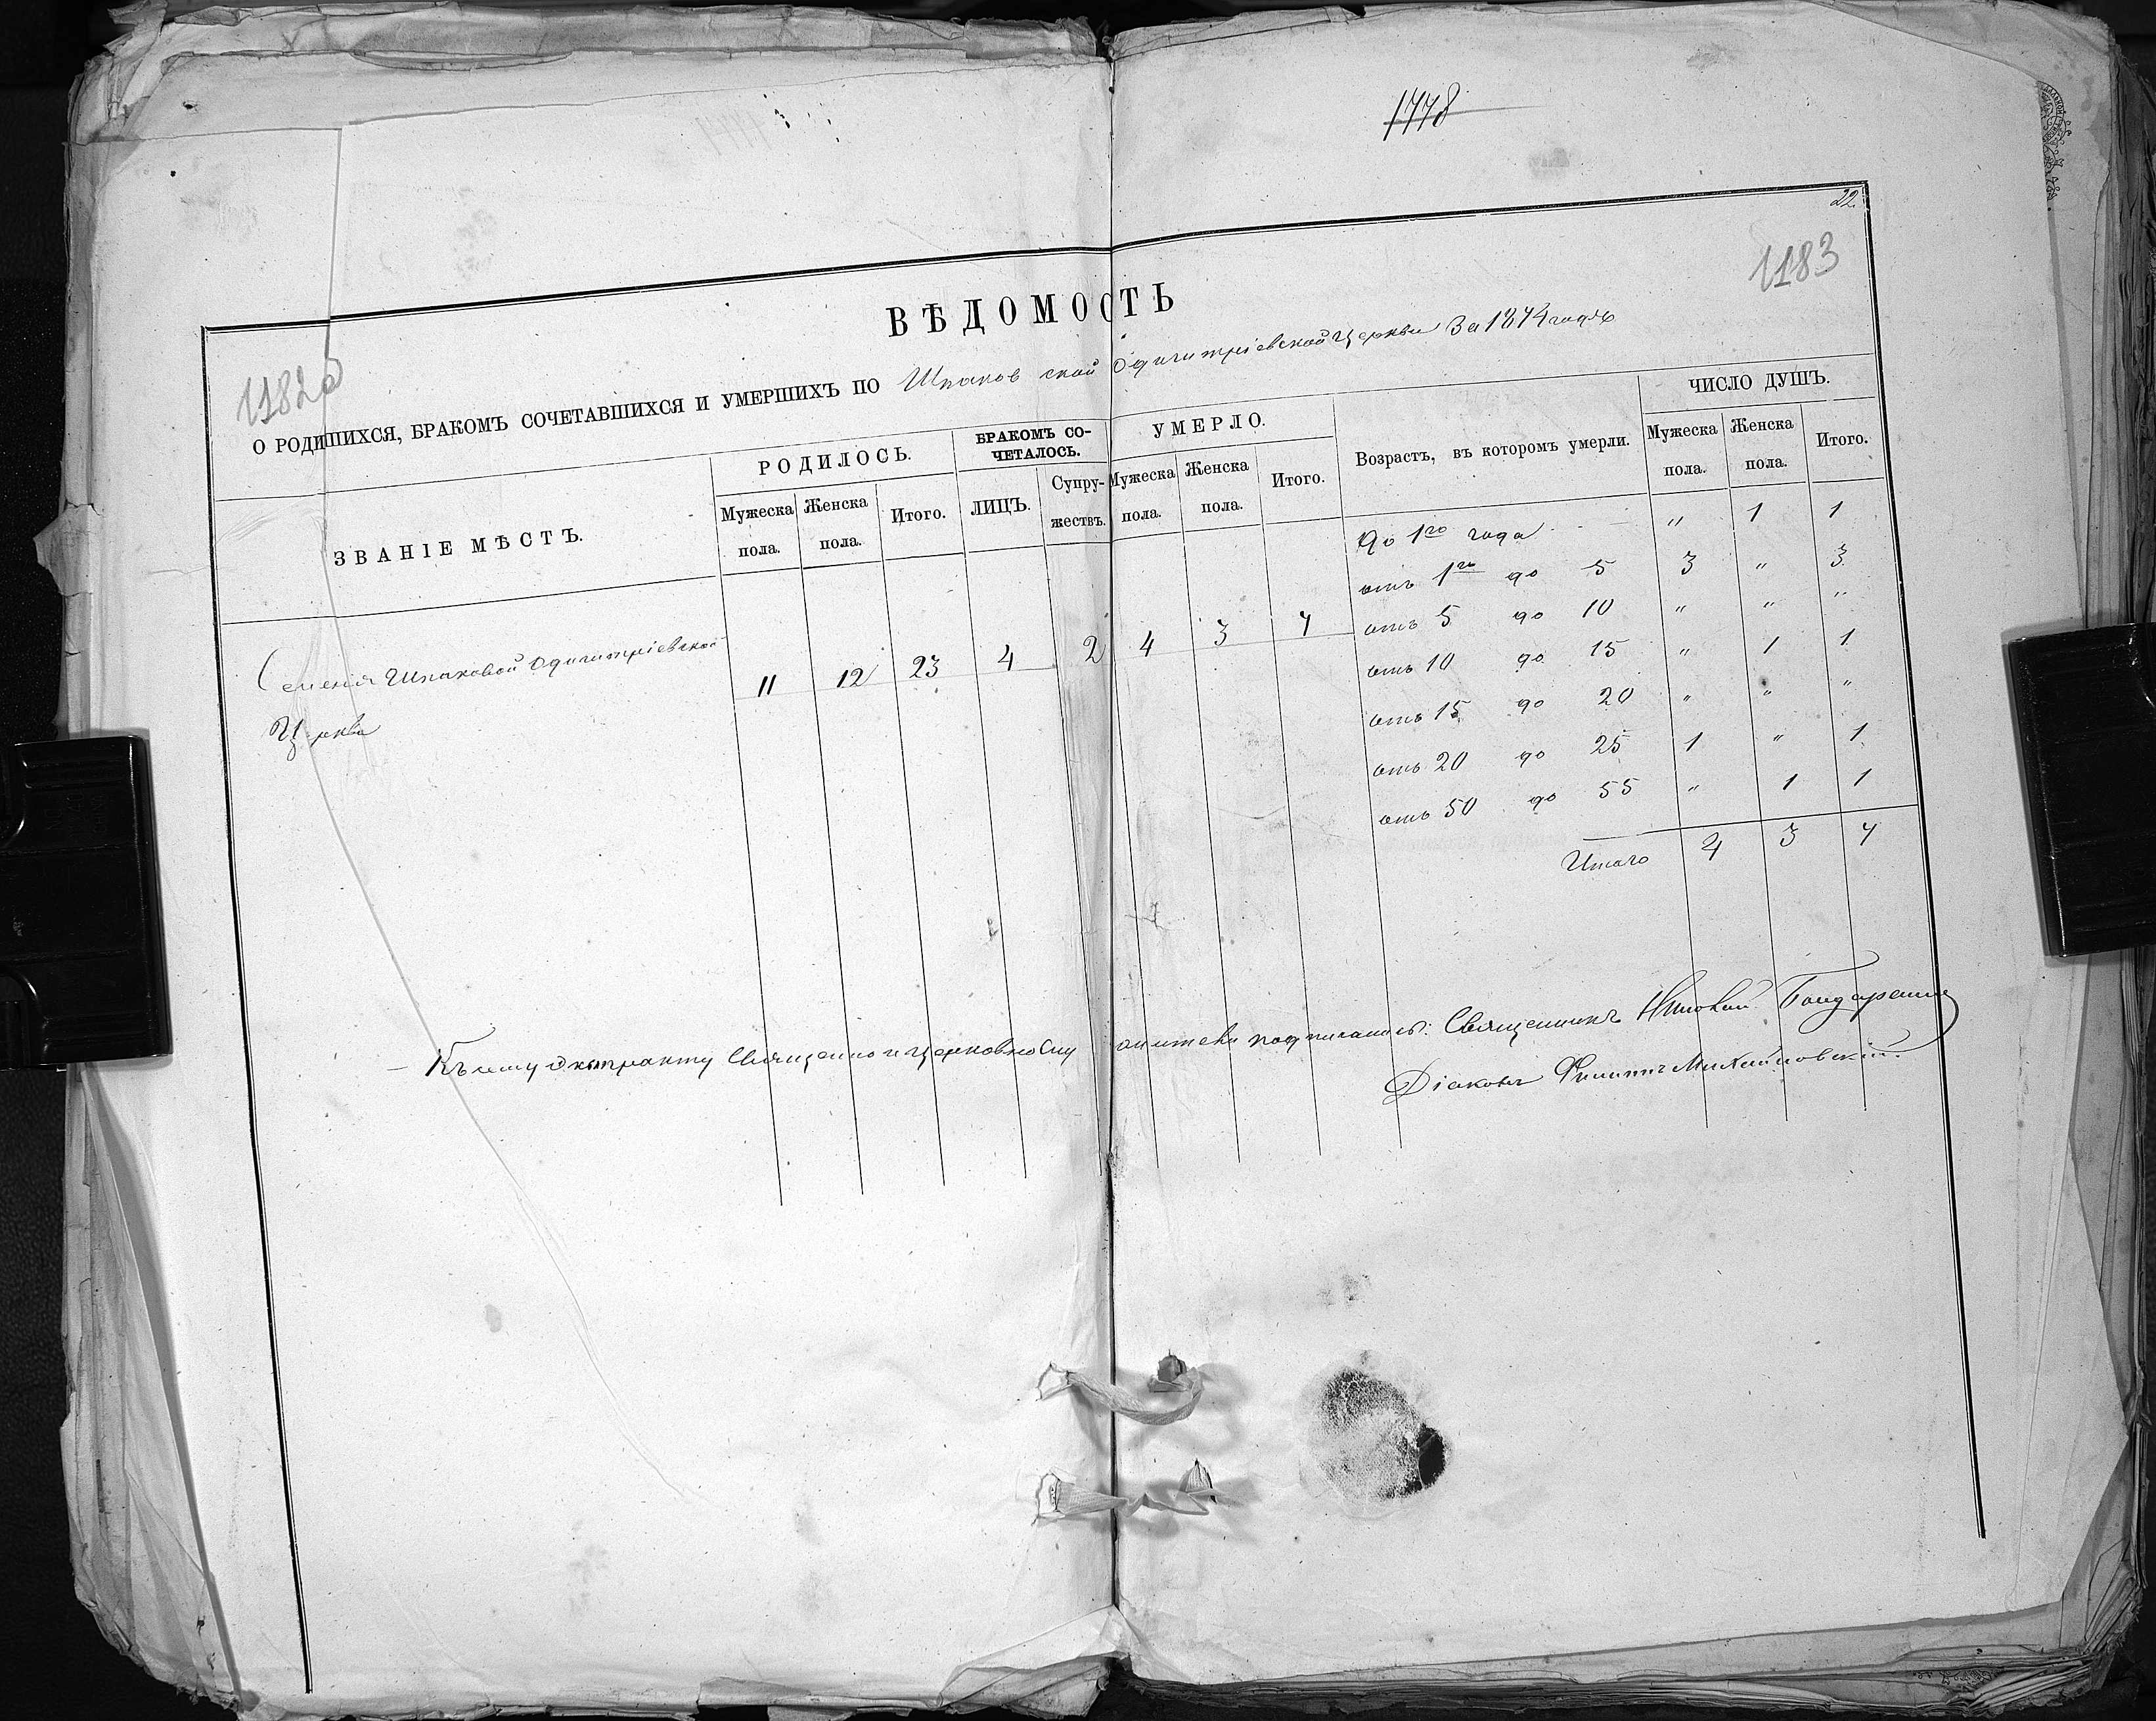 1778
22.
1183
1182об
ВѢДОМОСТЬ
О РОДИВШИХСЯ, БРАКОМЪ СОЧЕТАВШИХСЯ И УМЕРШИХЪ ПО Шпаковской Одигитріевской Церкви За 1874 годъ
ЗВАНІЕ МѢСТЪ.
РОДИЛОСЬ.
Мужеска пола.
Женска пола.
Итого.
БРАКОМЪ СО-
ЧЕТАЛОСЬ.
ЛИЦЪ.
Супру-
жествъ.
УМЕРЛО.
Мужеска пола.
Женска пола.
Итого.
Возрастъ, въ которомъ умерли.
ЧИСЛО ДУШЪ.
Мужеска пола.
Женска пола.
Итого.
Шпаковой Одигитріевской
Церкви
11 12 23 4 2 4 3 7
До 1го года " 1 1
отъ 1го до 5 3 " 3
отъ 5 до 10 " " "
отъ 10 до 15 " 1 1
отъ 15 до 20 " " "
отъ 20 до 25 1 " 1
отъ 50 до 55 " 1 1
Итого 4 3 7
Къ сему экстракту Священно и церковнослужители подписались: Священникъ
Діаконъ Филиппъ Михайловскій.